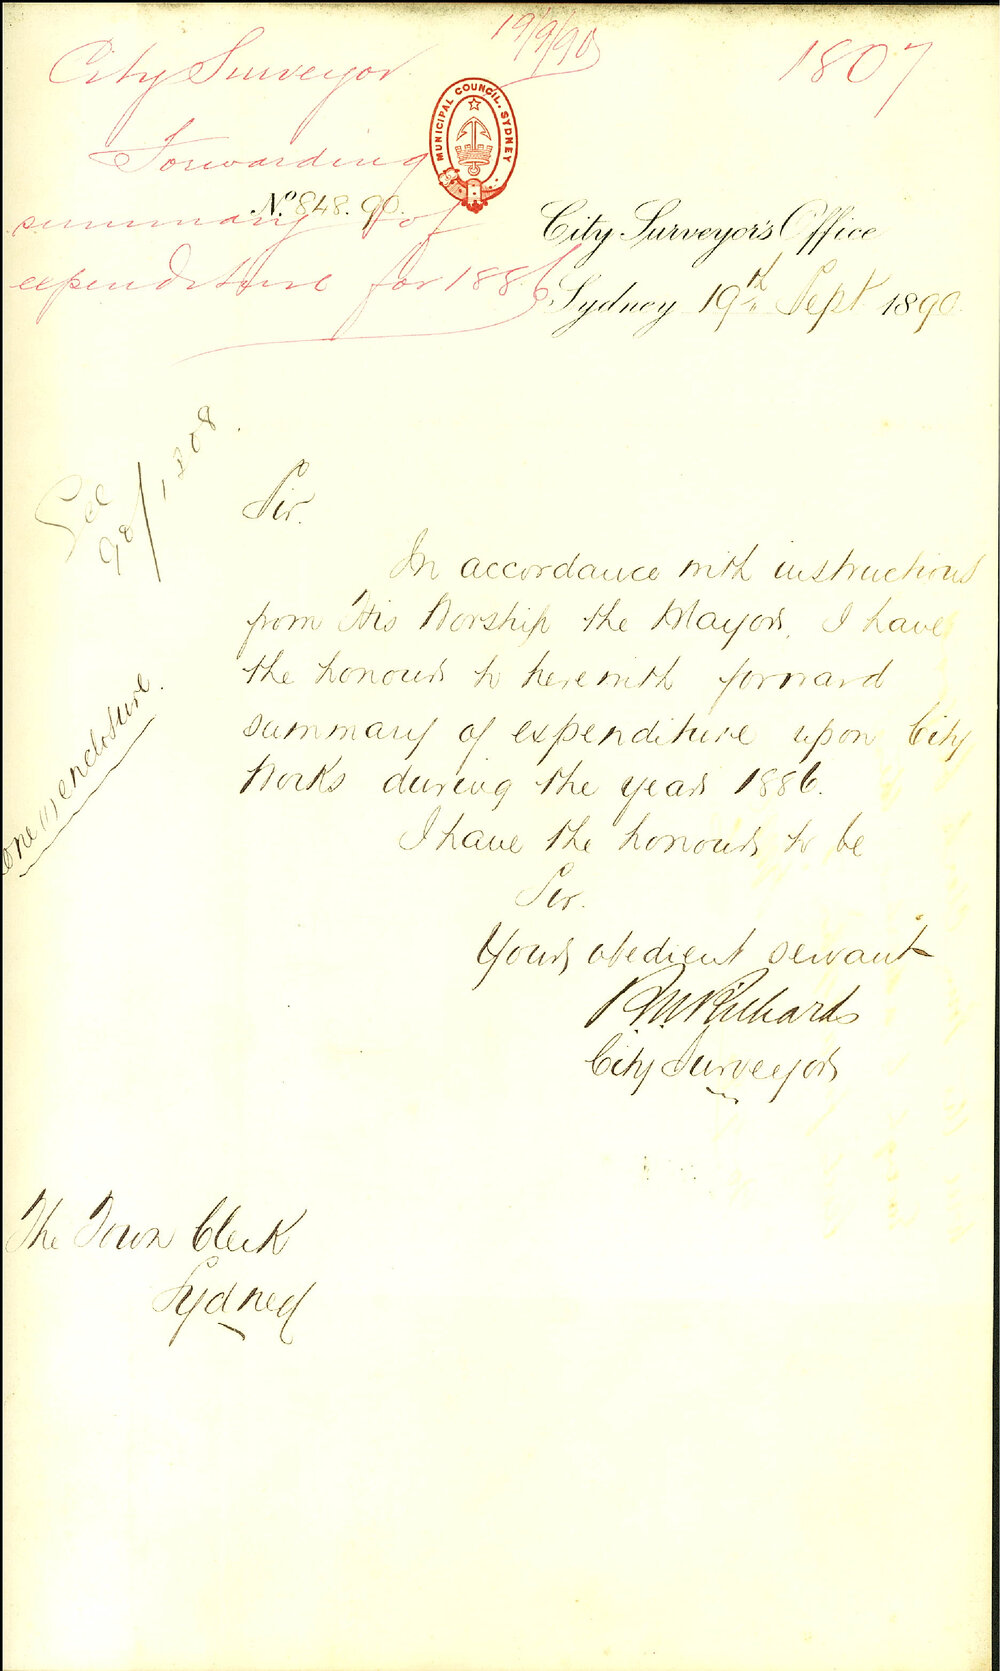 19/9/90
City Surveyor
1807
MUNICIPAL COUNCIL. SYDNEY
Forwarding
summary of
expenditure for 1886
No. 848. 90.
City Surveyor's Office
Sydney 19th Sept 1890
See
90/1308.
Sir.
In accordance with instructions
from His Worship the Mayor, I have
the honour to herewith forward
summary of expenditure upon City
Works during the year 1886.
one (1) enclosure.
I have the honour to be
Sir.
Your obedient servant
R.M. Richards
City Surveyor
The Town Clerk
Sydney